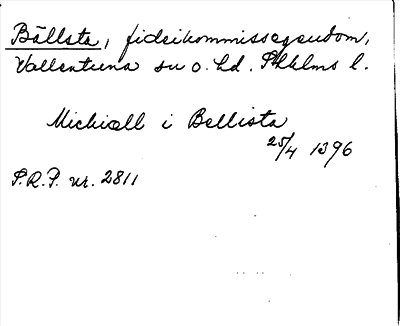 Bällsta, fideikommissegendom,
Vallentuna su o. hd. Sthlms l.
Michiæll i Bellista
25/4 1396
S.R.P. nr. 2811